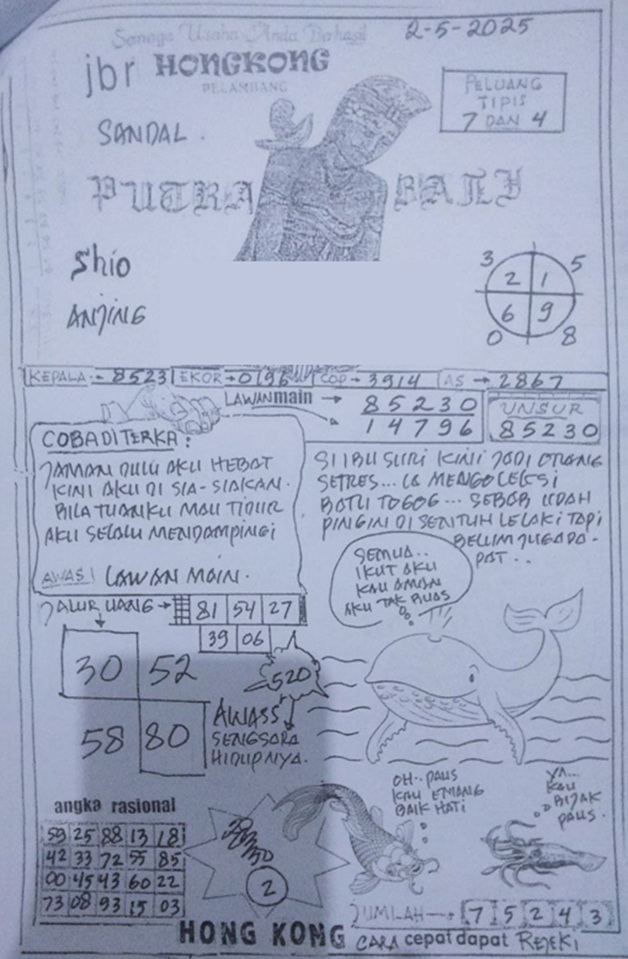 Semoga Usaha Anda Berhasil
2-5-2025
jbr HONGKONG
PELAMBANG
PELUANG
TIPIS
7 DAN 4
SANDAL.
PUTRA BALI
Shio
ANJING
3 5
2 1
6 9
0 8
KEPALA :- 8523 EKOR → 0196 COP → 3914 AS → 2867
LAWAN main → 85230
14796
UNSUR
85230
COBA DITERKA :
JAMAN DULU AKU HEBAT
KINI AKU DI SIA-SIAKAN.
BILA TUANKU MAU TIDUR
AKU SELALU MENDAMPINGI
AWAS! LAWAN MAIN.
SI IBU SURI KINI JADI ORANG
SETRES... LA MENGOLEKSI
BATU TOGOG... SEBAB UDAH
PINGIN DI SENTUH LELAKI TAPI
BELUM JUGA DA-
PAT..
SEMUA..
IKUT AKU
KAU AMAN
AKU TAK BUAS
JALUR UANG → 81 54 27
39 06
30 52
58 80
520
AWASS
SENGSARA
HIDUPNYA.
OH.. PAUS
KAU EMANG
BAIK HATI
YA...
KAU
BIJAK
PAUS.
angka rasional
59 25 88 13 18
42 33 72 55 85
00 45 43 60 22
73 08 93 15 03
2
JUMLAH → 7 5 2 4 3
HONG KONG CARA cepat dapat REJEKI